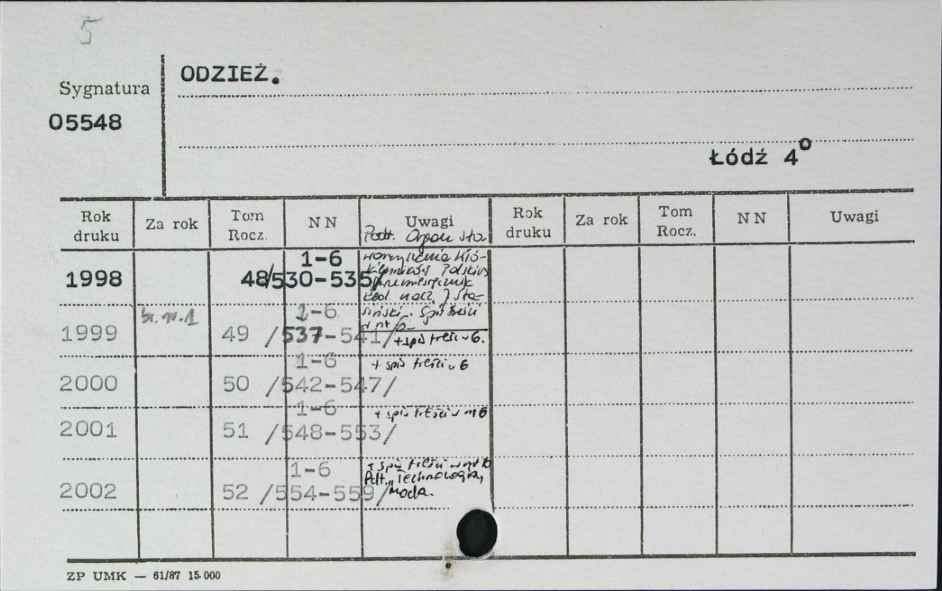 5
Sygnatura
05548
ODZIEŻ.
Łódź 4°
Rok druku Za rok Tom Rocz. NN Uwagi Rok druku Za rok Tom Rocz. NN Uwagi
Podt. Organ Sto-
warzyszenia Włó-
kienników Polskich
Dwumiesięcznik
Red. nacz. J. Sta-
siński. Spis treści
w nr 6
1998 48/530-535/ 1-6
1999 br. nr. 1 49 /537-541/ 1-6 + spis treści w 6.
2000 50 /542-547/ 1-6 + spis treści w 6
2001 51 /548-553/ 1-6 + spis treści w nr 6
2002 52 /554-559/ 1-6 + spis treści w nr 6
Podt., Technologia,
Moda.
ZP UMK — 61/87 15.000